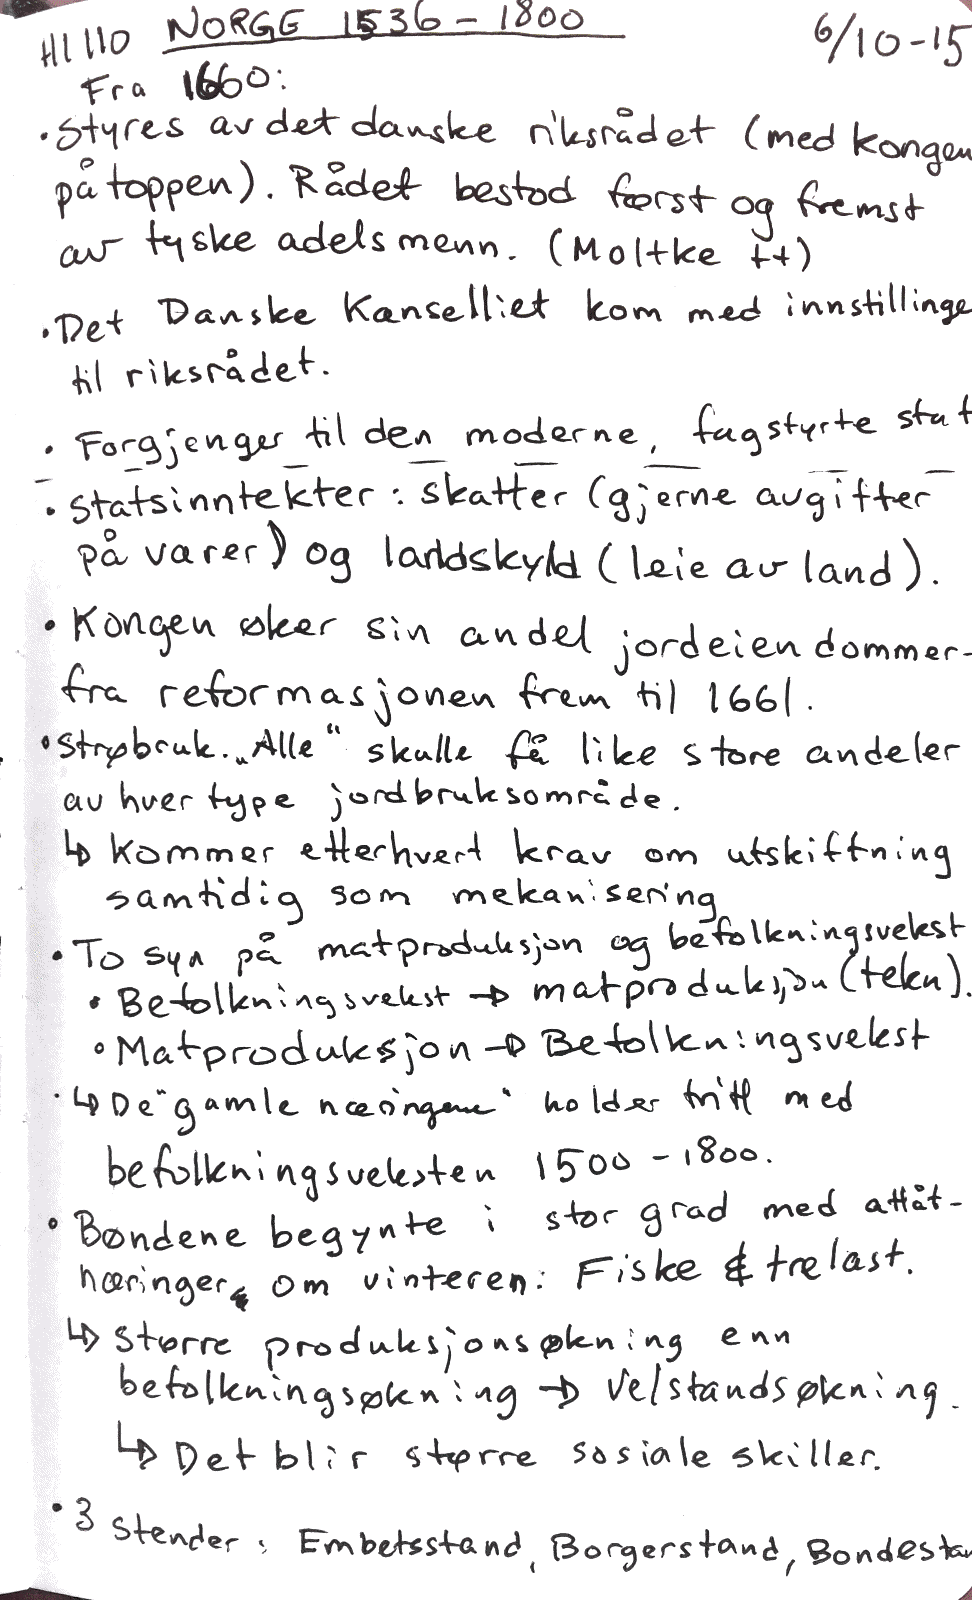 HI 110 NORGE 1536 – 1800 6/10-15
Fra 1660:
• Styres av det danske riksrådet (med kongen
på toppen). Rådet bestod først og fremst
av tyske adelsmenn. (Moltke ++)
• Det Danske Kanselliet kom med innstillinge
til riksrådet.
• Forgjenger til den moderne, fagstyrte stat
• Statsinntekter: skatter (gjerne avgifter
på varer) og landskyld (leie av land).
• Kongen øker sin andel jordeiendommer-
fra reformasjonen frem til 1661.
• Strøbruk. „Alle" skulle få like store andeler
av hver type jordbruksområde.
↳ Kommer etterhvert krav om utskiftning
samtidig som mekanisering
• To syn på matproduksjon og befolkningsvekst
• Befolkningsvekst → matproduksjon (tekn).
• Matproduksjon → Befolkningsvekst
• ↳ De "gamle næringene" holder tritt med
befolkningsveksten 1500 – 1800.
• Bøndene begynte i stor grad med attåt-
næringer om vinteren: Fiske & trelast.
↳ Større produksjonsøkning enn
befolkningsøkning → Velstandsøkning.
↳ Det blir større sosiale skiller.
• 3 Stender: Embetsstand, Borgerstand, Bondestan